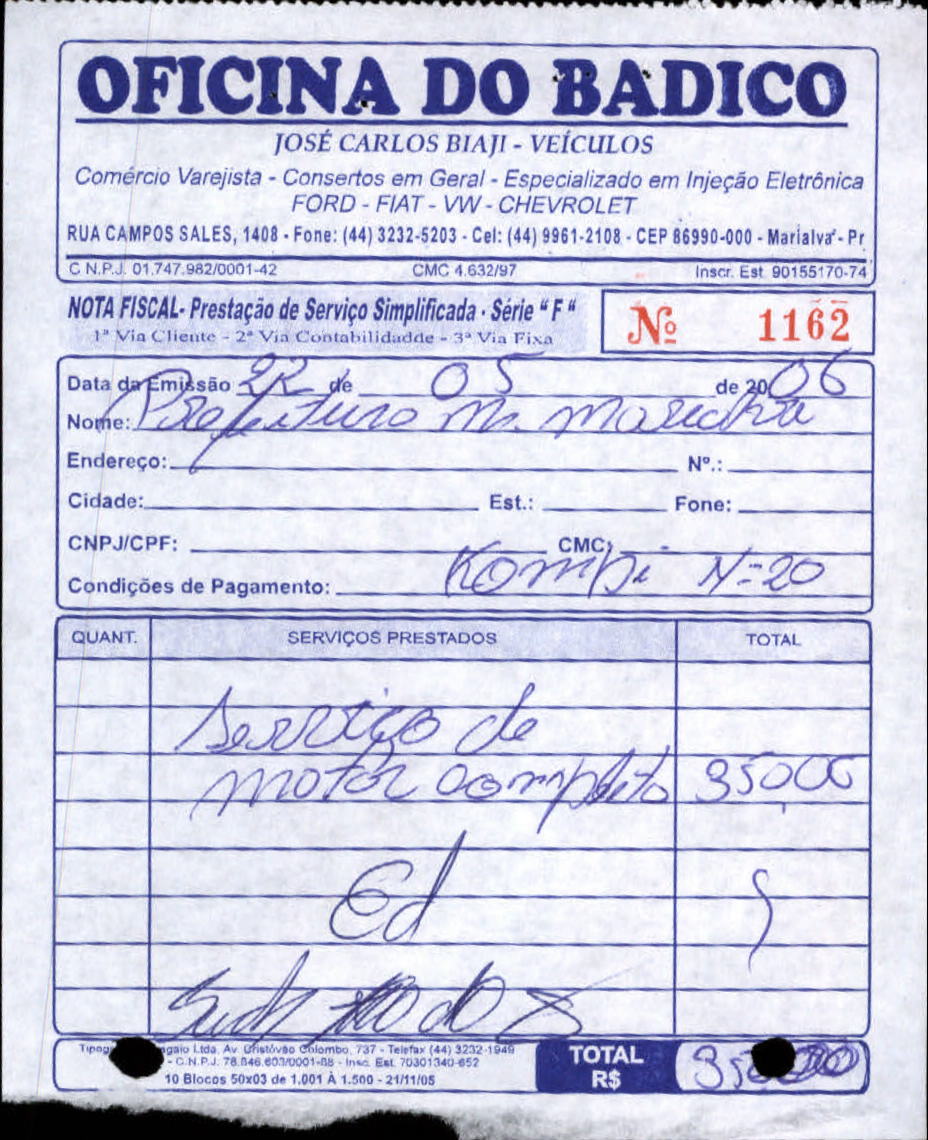 OFICINA DO BADICO
JOSÉ CARLOS BIAJI - VEÍCULOS
Comércio Varejista - Consertos em Geral - Especializado em Injeção Eletrônica
FORD - FIAT - VW - CHEVROLET
RUA CAMPOS SALES, 1408 - Fone: (44) 3232-5203 - Cel: (44) 9961-2108 - CEP 86990-000 - Marialva - Pr
C N.P.J. 01.747.982/0001-42 CMC 4.632/97 Inscr. Est. 90155170-74
NOTA FISCAL- Prestação de Serviço Simplificada - Série "F"
1ª Via Cliente - 2ª Via Contabilidadde - 3ª Via Fixa
Nº 1162
Data da Emissão 22 de 05 de 2006
Nome: Prefeitura M. Marialva
Endereço: Nº.:
Cidade: Est.: Fone:
CNPJ/CPF: CMC:
Condições de Pagamento: Kombi Nº 20
QUANT. SERVIÇOS PRESTADOS TOTAL
Serviço de
motor completo 350,00
Ed
Ltda. Av. Cristóvão Colombo, 737 - Telefax (44) 3232-1949
- C.N.P.J. 78.846.603/0001-88 - Insc. Est. 70301340-652
10 Blocos 50x03 de 1.001 À 1.500 - 21/11/05
TOTAL
R$